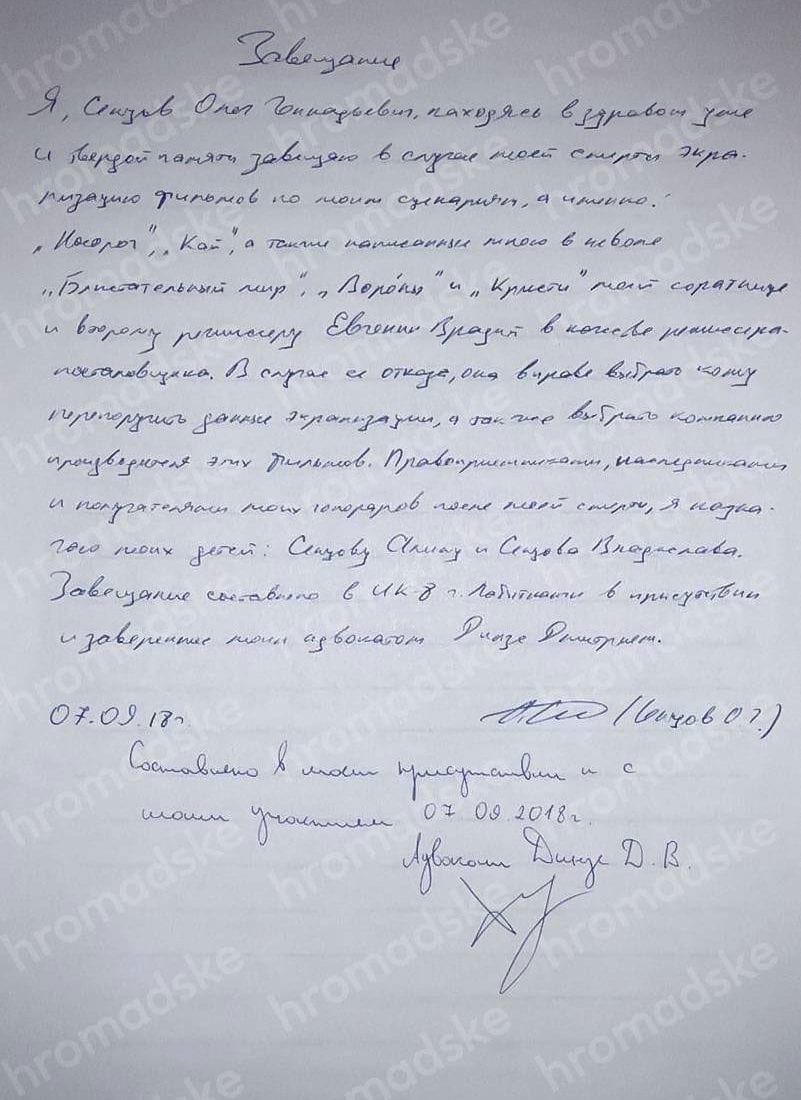 Завещание
Я, Сенцов Олег Геннадьевич, находясь в здравом уме
и твердой памяти завещаю в случае моей смерти экра-
низацию фильмов по моим сценариям, а именно:
„Носорог", „Кай", а также написанные мною в неволе
„Блистательный мир", „Воро́ны" и „Крысти" моей соратнице
и второму режиссеру Евгении Врадий в качестве режиссера-
постановщика. В случае ее отказа, она вправе выбрать кому
перепоручить данные экранизации, а так же выбрать компанию
производителя этих фильмов. Правоприемниками, наследниками
и получателями моих гонораров после моей смерти, я назна-
чаю моих детей: Сенцову Алину и Сенцова Владислава.
Завещание составлено в ИК-8 г. Лабытнанги в присутствии
и заверенное моим адвокатом Динзе Дмитрием.
07.09.18г.
(Сенцов О.Г.)
Составлено в моем присутствии и с
моим участием 07.09.2018г.
Адвокат Динзе Д.В.
hromadske